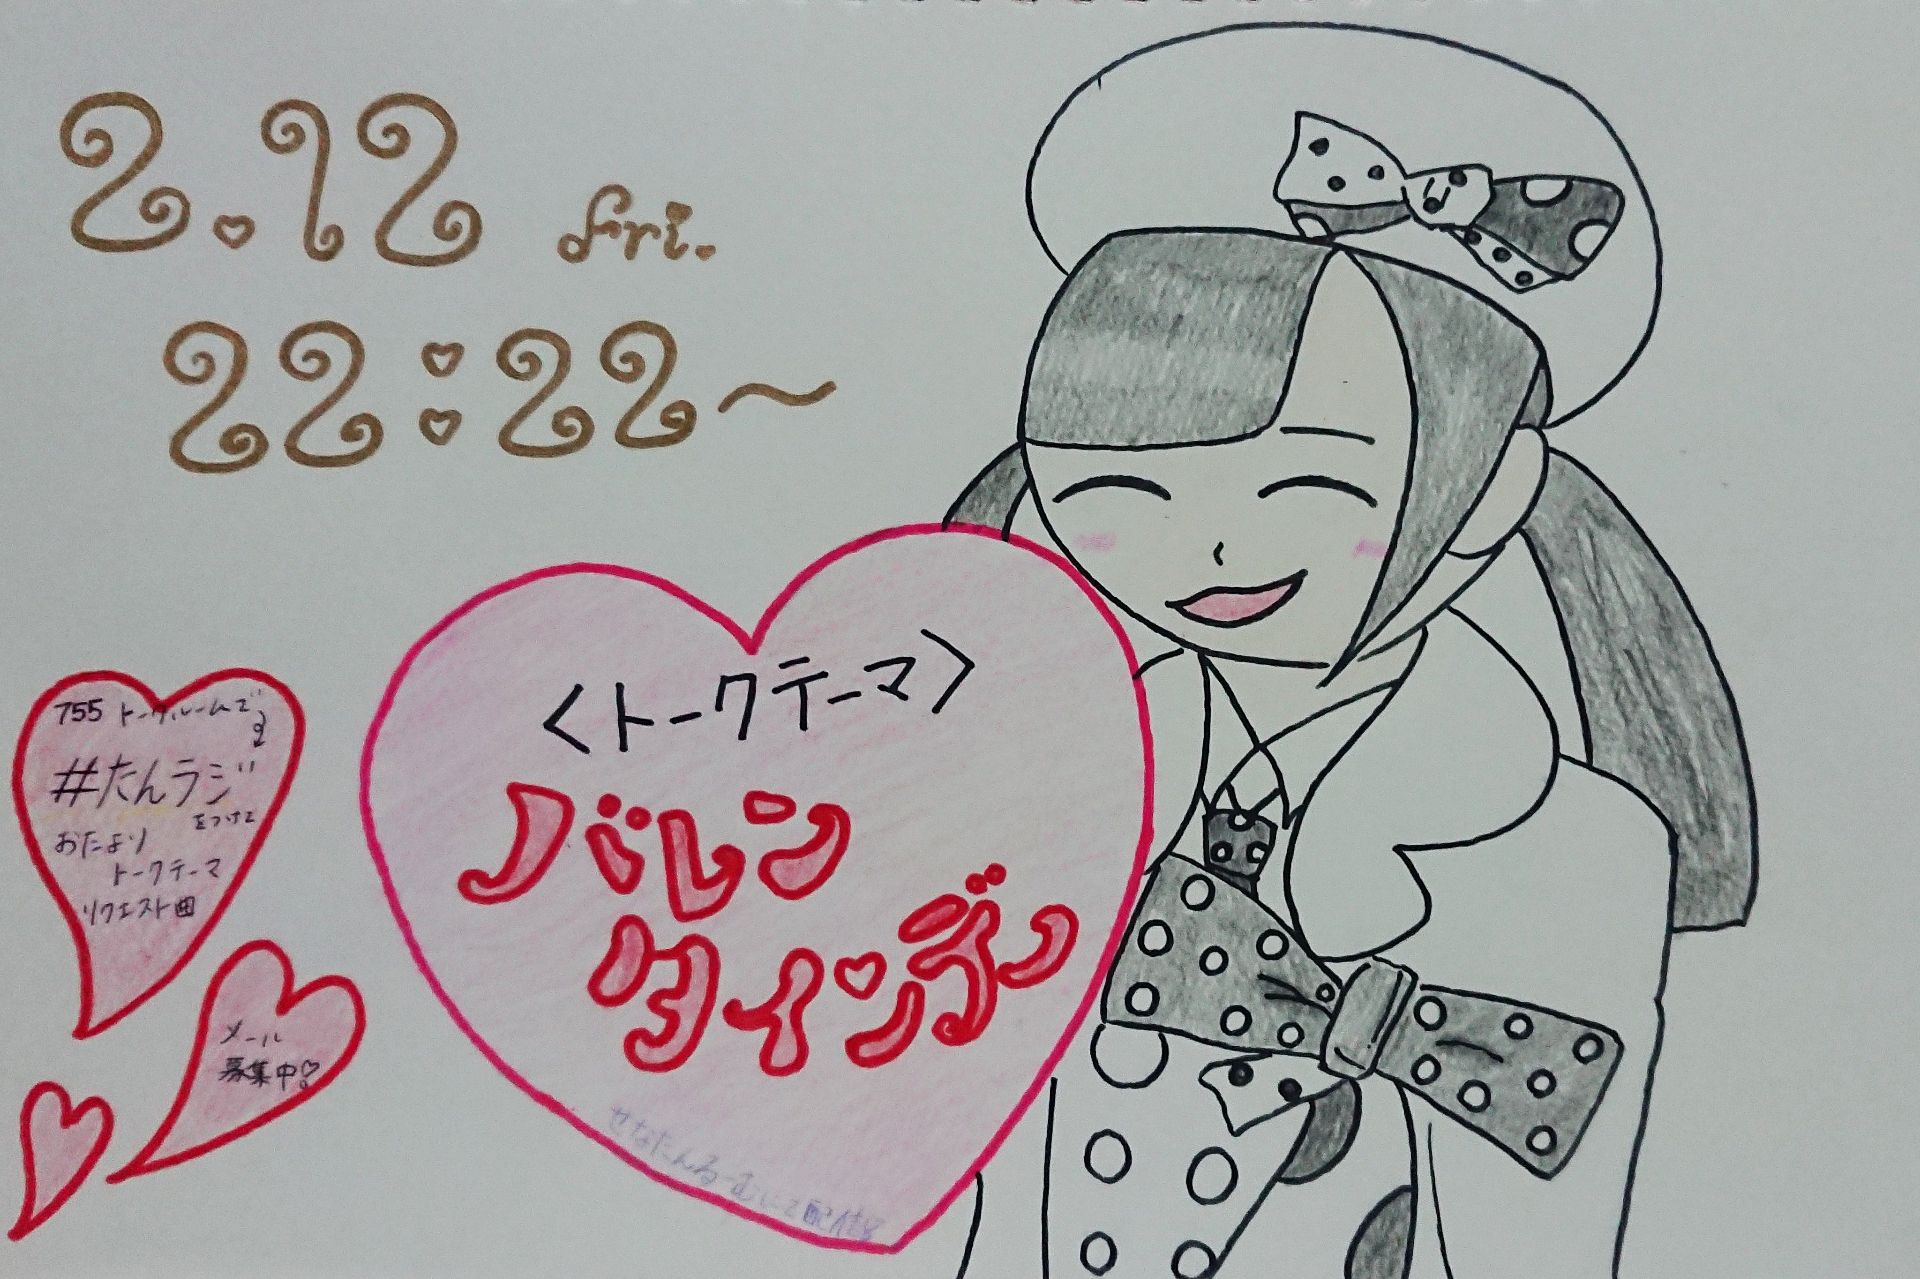 2.12 fri.
22:22～
<トークテーマ>
バレン
タインデー
755 トークルームで
#たんラジ
をつけて
おたより
トークテーマ
リクエスト曲
メール
募集中♡
せなたんるーむにて配信